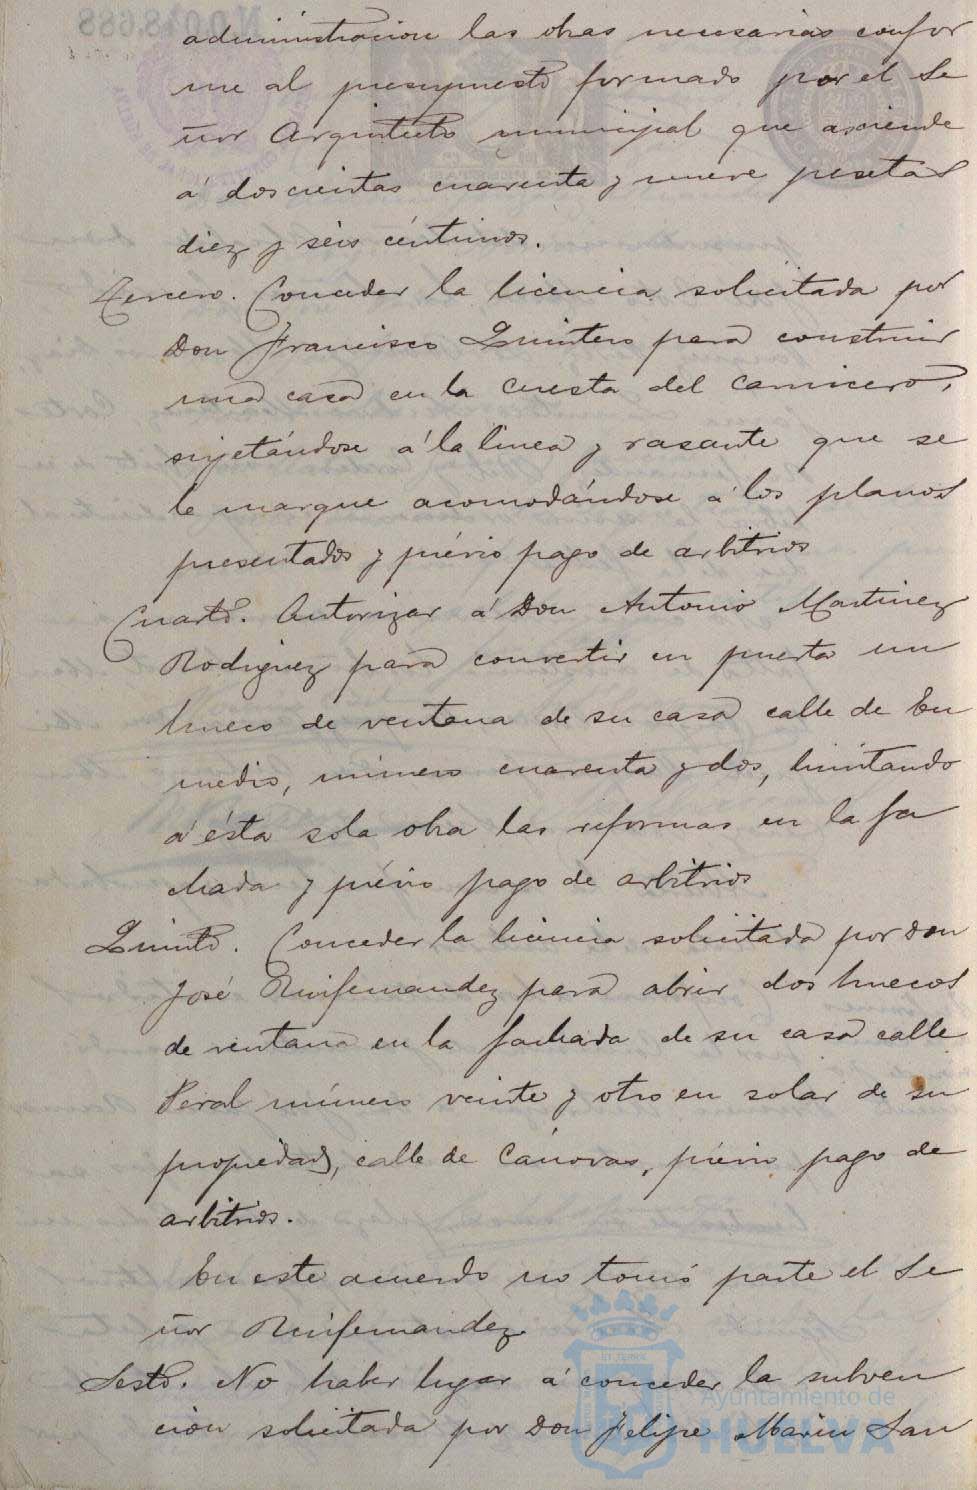 N.0.018.688
administracion las obras necesarias confor
me al presupuesto formado por el Se
ñor Arquitecto municipal que asciende
á doscientas cuarenta y nueve pesetas
diez y seis céntimos.
Tercero. Conceder la licencia solicitada por
Don Francisco Quintero para construir
una casa en la Cuesta del Carnicero,
sujetándose á la linea y rasante que se
le marque acomodándose á los planos
presentados y prévio pago de arbitrios
Cuarto. Autorizar á Don Antonio Martinez
Rodriguez para convertir en puerta un
hueco de ventana de su casa calle de En
medio, número cuarenta y dos, limitando
á ésta sola obra las reformas en la fa
chada y prévio pago de arbitrios
Quinto. Conceder la licencia solicitada por Don
José Ruifernandez para abrir dos huecos
de ventana en la fachada de su casa calle
Peral número veinte y otro en solar de su
propiedad, calle de Cánovas, prévio pago de
arbitrios.
En este acuerdo no tomó parte el Se
ñor Ruifernandez
Sesto. No haber lugar á conceder la subven
cion solicitada por Don Felipe Marin San
Ayuntamiento de
HUELVA